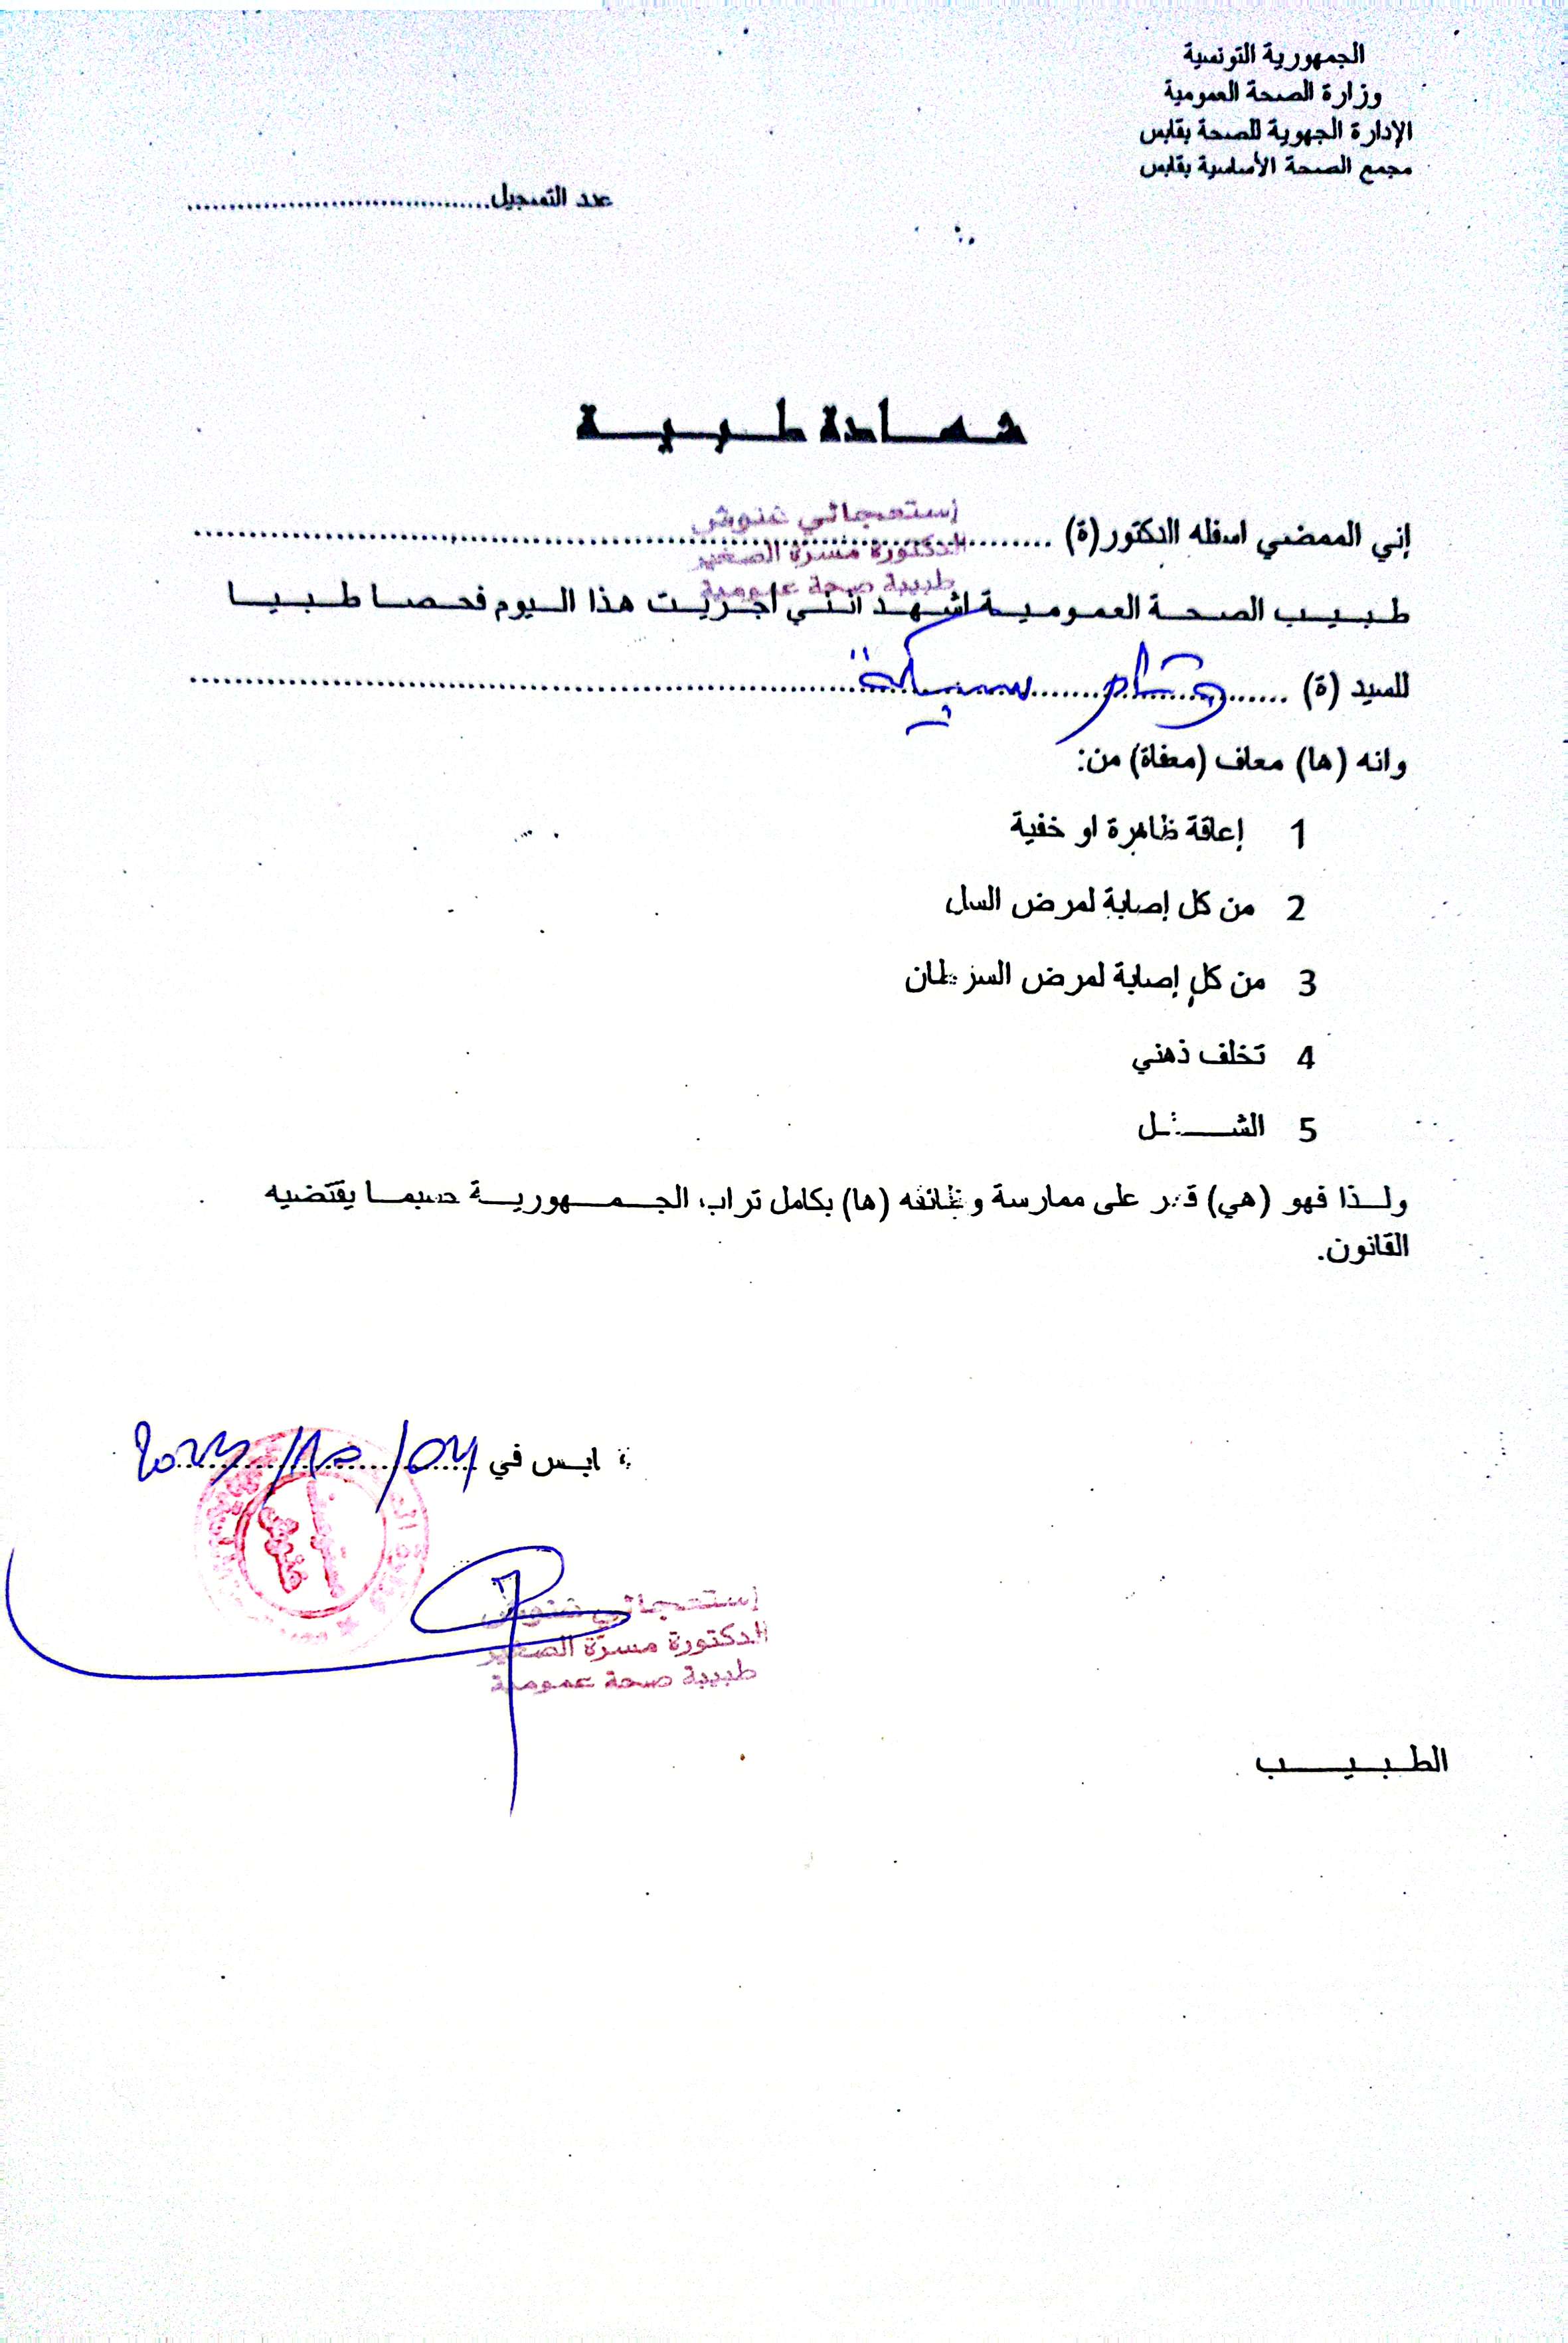 الجمهورية التونسية
وزارة الصحة العمومية
الإدارة الجهوية للصحة بقابس
مجمع الصحة الأساسية بقابس
عدد التسجيل
شهادة طبية
إني الممضي اسفله الدكتور(ة)
إستعجالي غنوش
الدكتورة مسرّة الصغير
طبيبة صحة عمومية
طبيب الصحة العمومية اشهد انني اجريت هذا اليوم فحصا طبيا
للسيد (ة)
وانه (ها) معاف (معفاة) من:
1 إعاقة ظاهرة او خفية
2 من كل إصابة لمرض السل
3 من كل إصابة لمرض السرطان
4 تخلف ذهني
5 الشلل
ولذا فهو (هي) قدر على ممارسة وظائفه (ها) بكامل تراب الجمهورية حسبما يقتضيه
القانون.
قابس في 04/10/2023
إستعجالي غنوش
الدكتورة مسرّة الصغير
طبيبة صحة عمومية
الطبيب